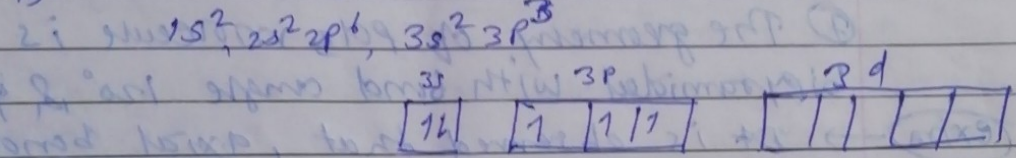 1s², 2s² 2p⁶, 3s² 3p³
3s 3p 3d
1L 1 1 1